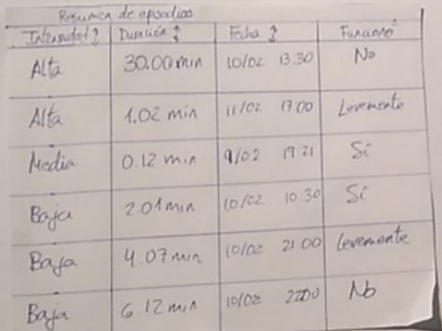 Resumen de episodios
Intensidad ↕ Duración ↕ Fecha ↕ Funcionó
Alta 30.00 min 10/02 13:30 No
Alta 1.02 min 11/02 17:00 Levemente
Media 0.12 min 9/02 19:21 Sí
Baja 2.01 min 10/02 10:30 Sí
Baja 4.07 min 10/02 21:00 Levemente
Baja 6.12 min 10/02 22:00 No